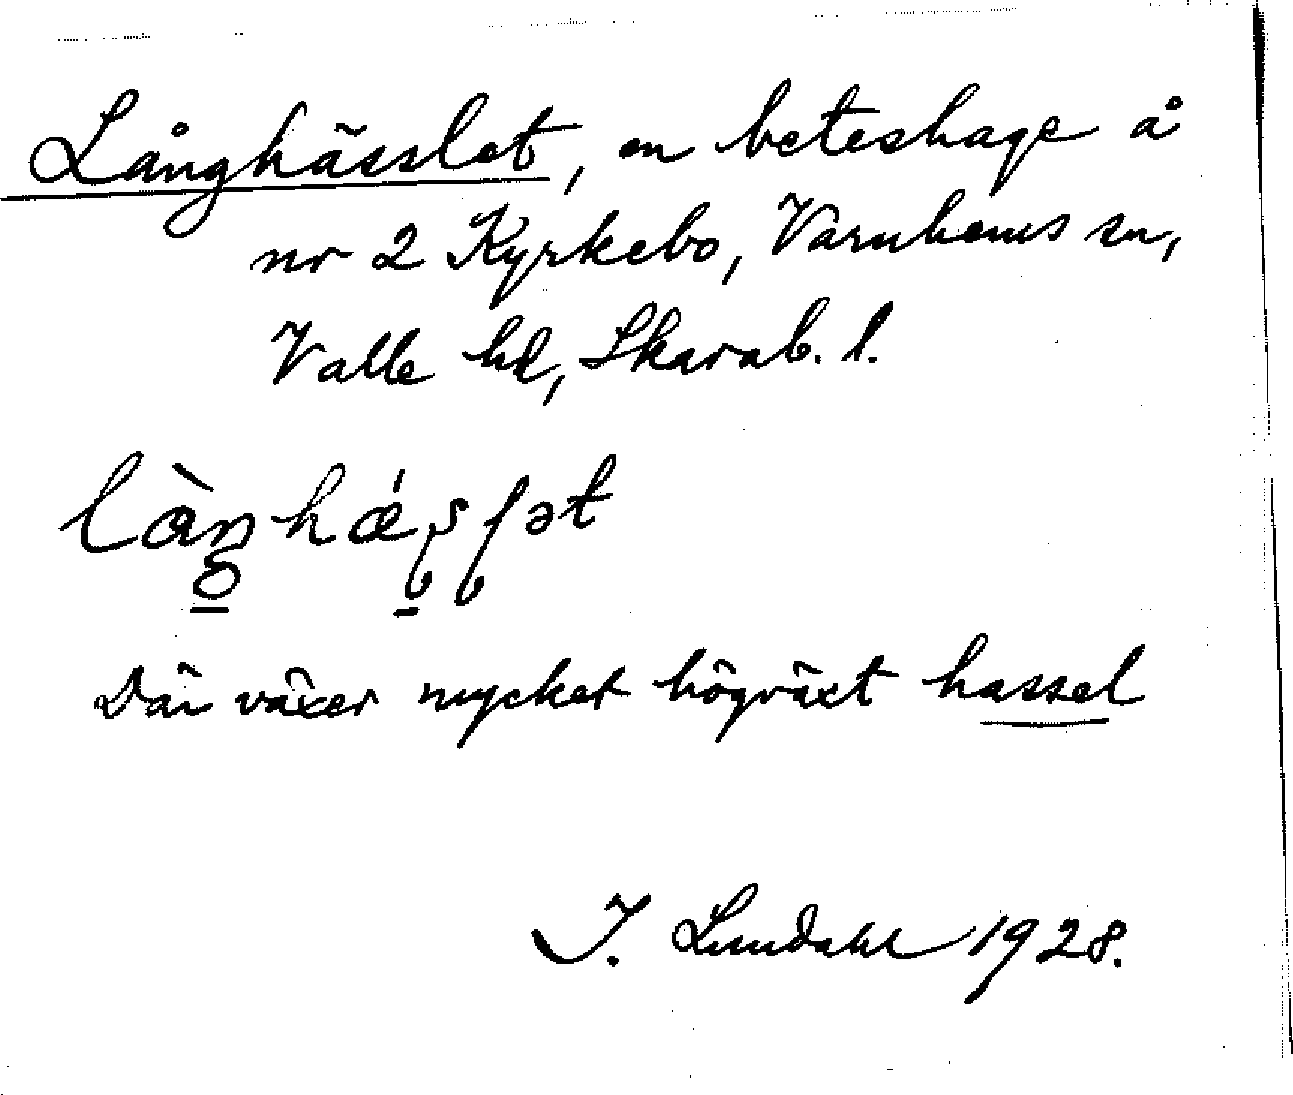 Långhässlet, en beteshage å
nr 2 Kyrkebo, Varnhems sn,
Valle hd, Skarab. l.
làŋhǽʂʃət
Där växer mycket högväxt hassel
I. Lundahl 1928.